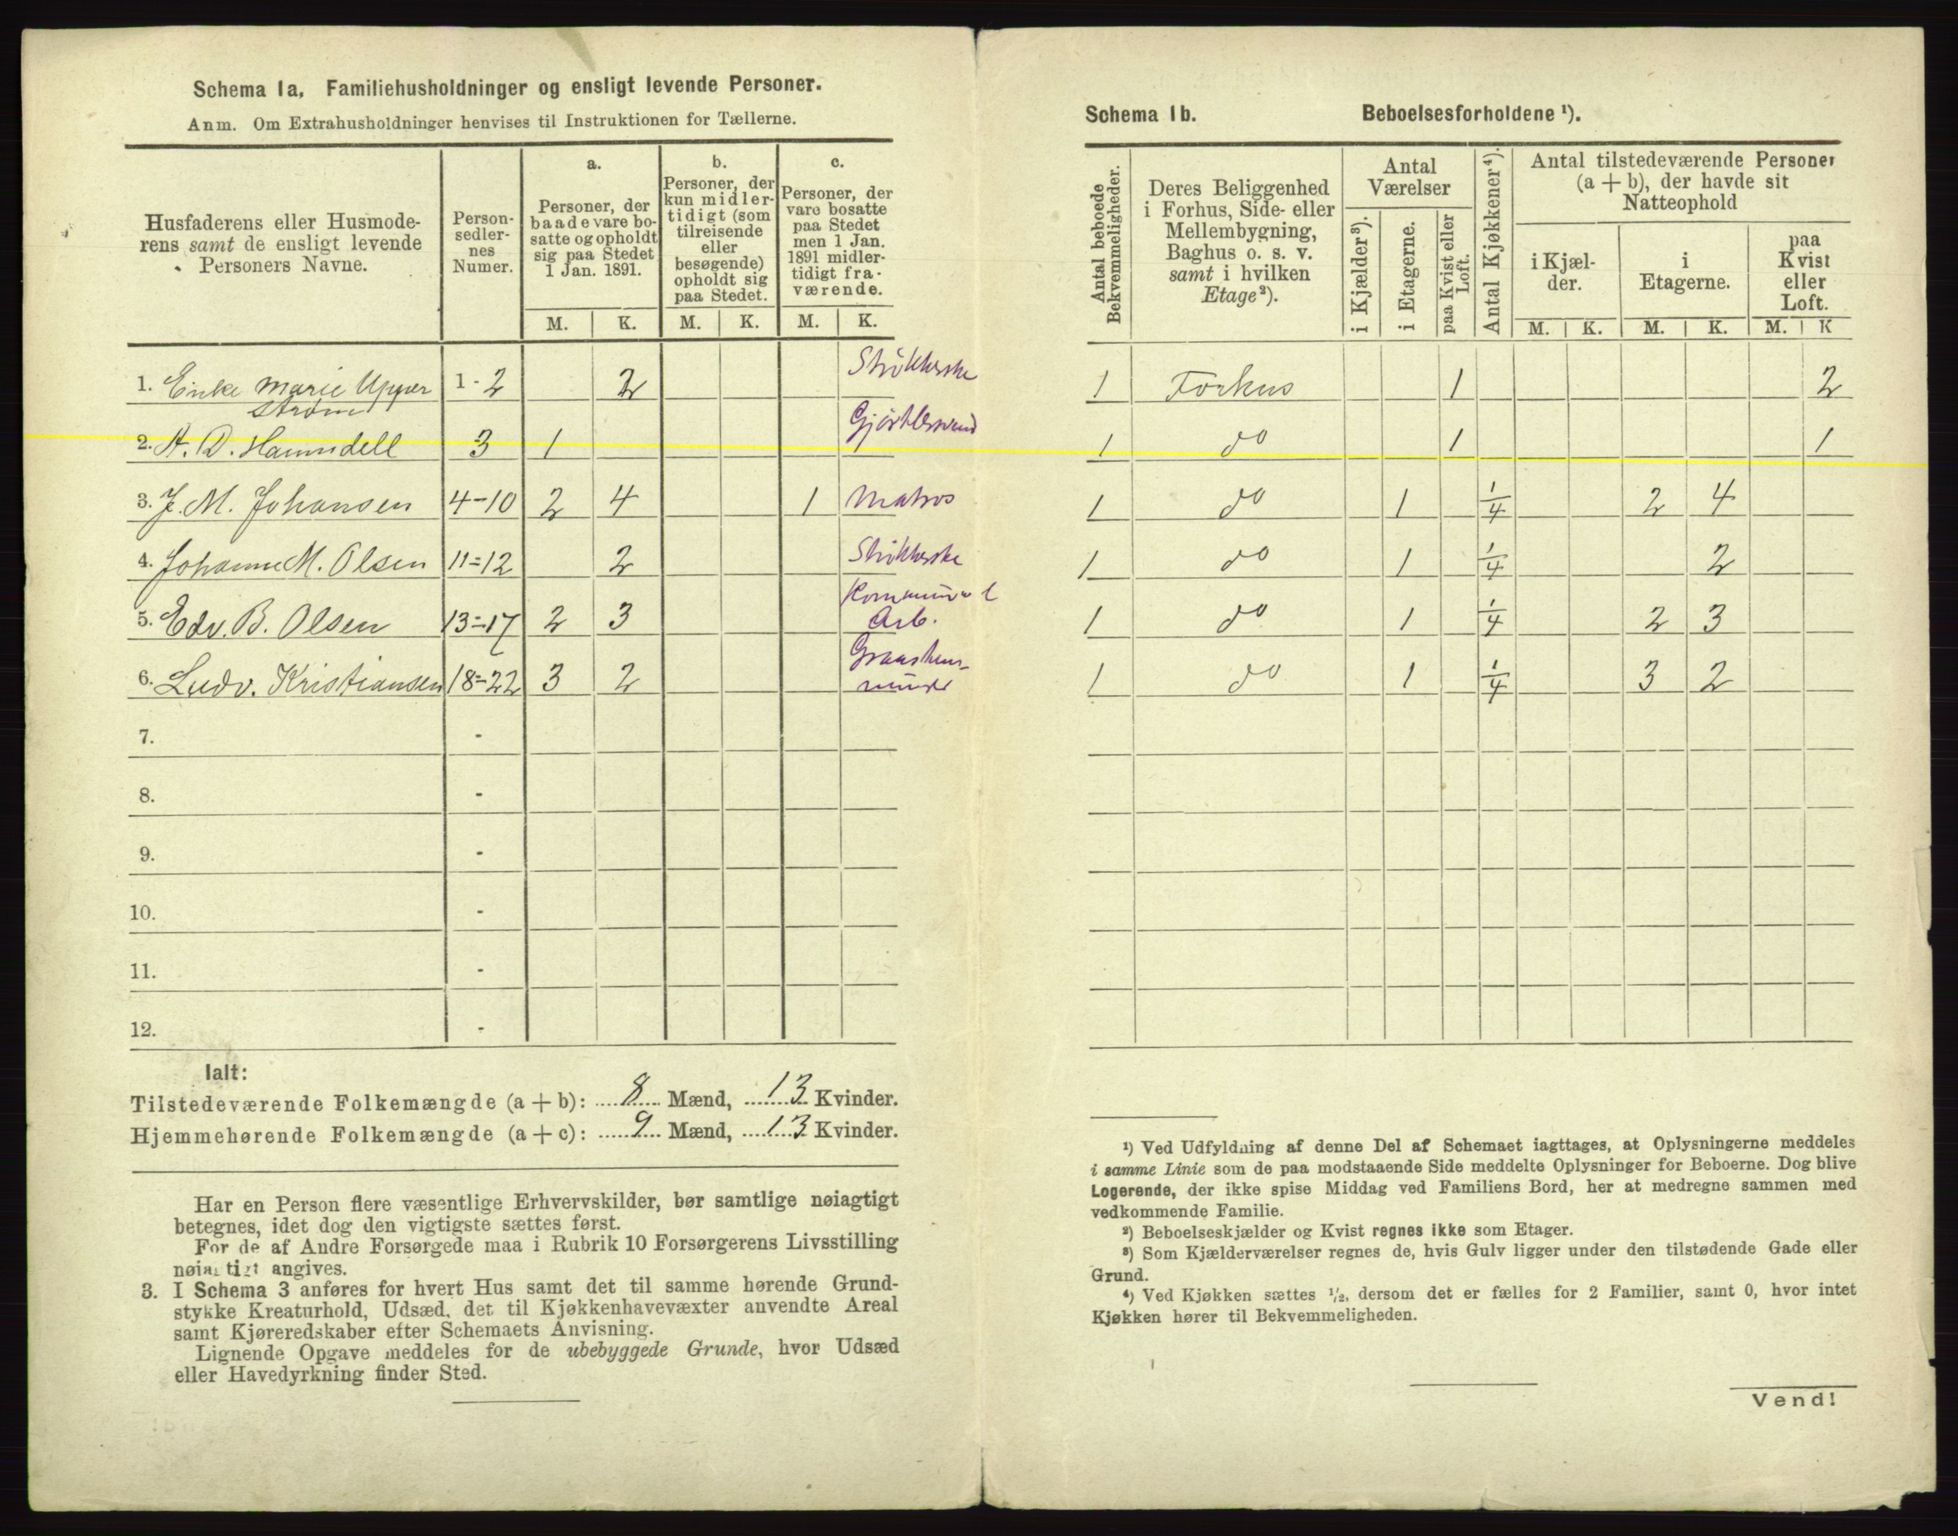 Schema 1a. Familiehusholdninger og ensligt levende Personer.
Anm. Om Extrahusholdninger henvises til Instruktionen for Tællerne.
Husfaderens eller Husmoderens samt de ensligt levende Personers Navne.
Personsedlernes Numer.
a. Personer, der baade vare bosatte og opholdt sig paa Stedet 1 Jan. 1891.
b. Personer, der kun midlertidigt (som tilreisende eller besøgende) opholdt sig paa Stedet.
c. Personer, der vare bosatte paa Stedet men 1 Jan. 1891 midlertidigt fraværende.
M. K. M. K. M. K.
1. Marie 1-2 2
2. A. D. 3 1
3. J. M. Johansen 4-10 2 4 1 Matros
4. Johanne M. Olsen 11=12 2
5. Edv. B. Olsen 13=17 2 3 Arb.
6. Ludv. Kristiansen 18=22 3 2
7. -
8. -
9. -
10. -
11. -
12. -
Ialt:
Tilstedeværende Folkemængde (a + b): 8 Mænd, 13 Kvinder.
Hjemmehørende Folkemængde (a + c): 9 Mænd, 13 Kvinder.
Har en Person flere væsentlige Erhvervskilder, bør samtlige nøiagtigt
betegnes, idet dog den vigtigste sættes først.
For de af Andre Forsørgede maa i Rubrik 10 Forsørgerens Livsstilling
nøiagtigt angives.
3. I Schema 3 anføres for hvert Hus samt det til samme hørende Grund-
stykke Kreaturhold, Udsæd, det til Kjøkkenhavevæxter anvendte Areal
samt Kjøreredskaber efter Schemaets Anvisning.
Lignende Opgave meddeles for de ubebyggede Grunde, hvor Udsæd
eller Havedyrkning finder Sted.
Schema 1b. Beboelsesforholdene ¹).
Antal beboede Bekvemmeligheder.
Deres Beliggenhed i Forhus, Side- eller Mellembygning, Baghus o. s. v. samt i hvilken Etage ²).
Antal Værelser
i Kjælder ³).
i Etagerne.
paa Kvist eller Loft.
Antal Kjøkkener ⁴).
Antal tilstedeværende Personer (a + b), der havde sit Natteophold
i Kjælder.
i Etagerne.
paa Kvist eller Loft.
M. K. M. K. M. K
1 Forhus 1 2
1 do 1 1
1 do 1 1/4 2 4
1 do 1 1/4 2
1 do 1 1/4 2 3
1 do 1 1/4 3 2
¹) Ved Udfyldning af denne Del af Schemaet iagttages, at Oplysningerne meddeles
i samme Linie som de paa modstaaende Side meddelte Oplysninger for Beboerne. Dog blive
Logerende, der ikke spise Middag ved Familiens Bord, her at medregne sammen med
vedkommende Familie.
²) Beboelseskjælder og Kvist regnes ikke som Etager.
³) Som Kjælderværelser regnes de, hvis Gulv ligger under den tilstødende Gade eller
Grund.
⁴) Ved Kjøkken sættes ½, dersom det er fælles for 2 Familier, samt 0, hvor intet
Kjøkken hører til Bekvemmeligheden.
Vend!